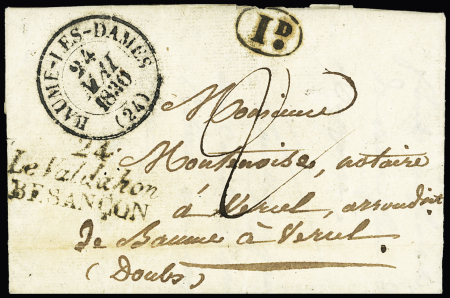 BAUME-LES-DAMES (24)
24
MAI
1840
1D.
24
Le Valdahon
BESANÇON
2
Monsieur
notaire
à Vercel, arrondt
de Baume à Vercel
(Doubs)